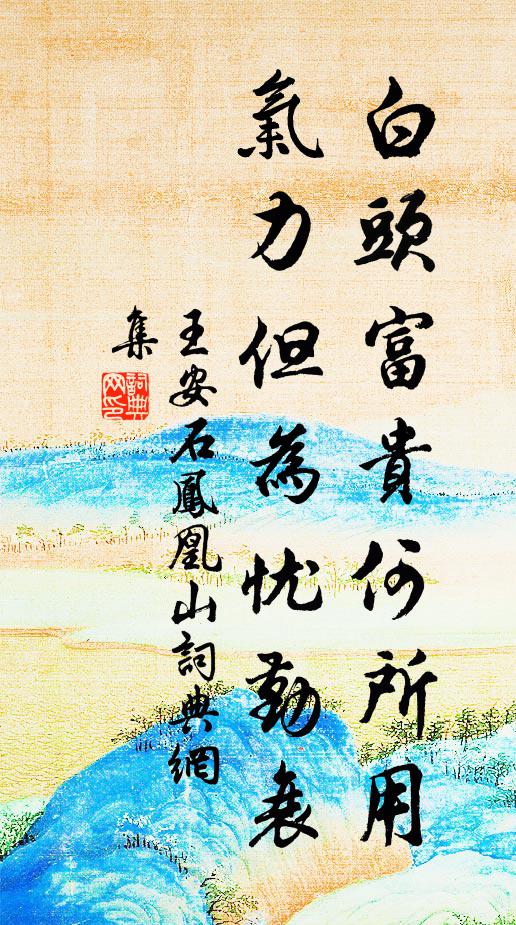 白頭富貴何所用
氣力但為忧勤衰
王安石鳳凰山詞典網
集
詞典網印